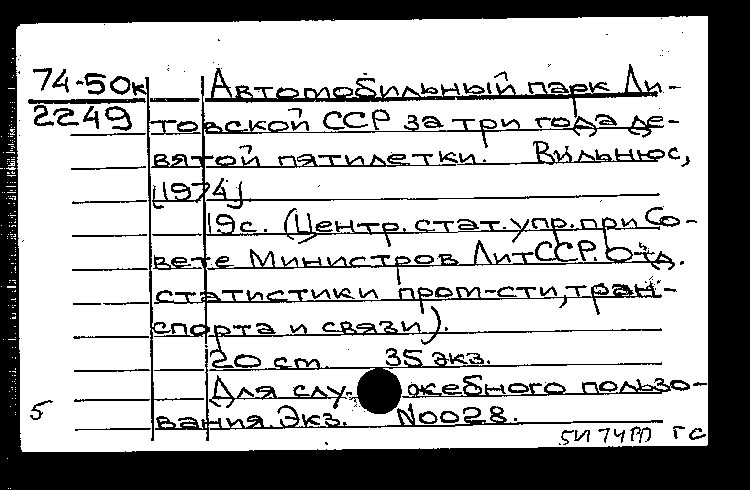 74-50к Автомобильный парк Ли-
2249 товской ССР за три года де-
вятой пятилетки. Вильнюс,
[1974].
19с. (Центр. стат. упр. при Со-
вете Министров ЛитССР. Отд.
статистики пром-сти, тран-
спорта и связи).
20 cm. 35 экз.
Для слу- ожебного пользо-
5 вания. Экз. №0028.
5И 74 ГС